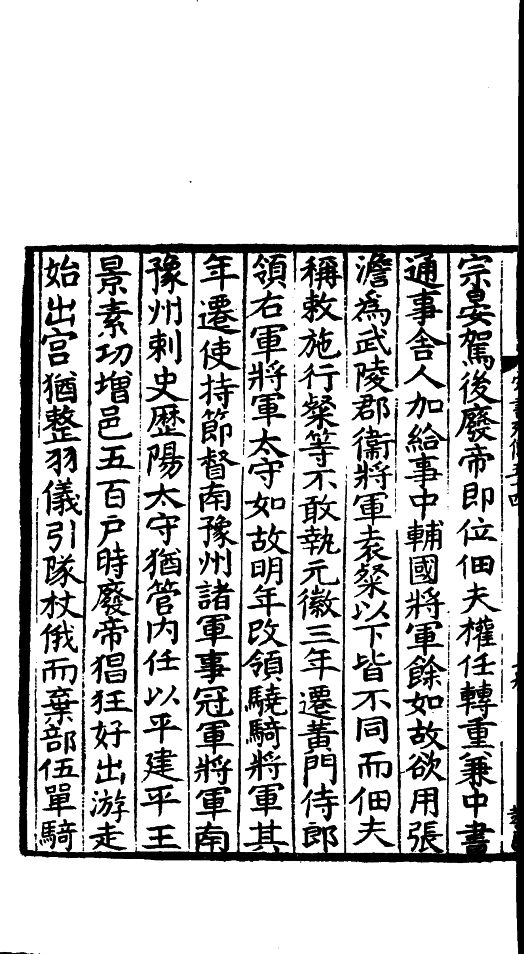 宗晏駕後廢帝即位佃夫權任轉重兼中書
通事舍人加給事中輔國將軍餘如故欲用張
澹為武陵郡衞將軍袁粲以下皆不同而佃夫
稱敕施行粲等不敢執元徽三年遷黃門侍郎
領右軍將軍太守如故明年改領驍騎將軍其
年遷使持節督南豫州諸軍事冠軍將軍南
豫州刺史歷陽太守猶管内任以平建平王
景素功增邑五百戶時廢帝猖狂好出游走
始出宫猶整羽儀引隊杖俄而棄部伍單騎